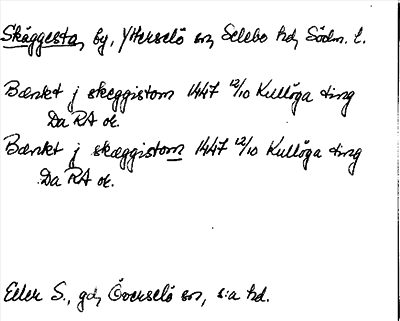 Skäggesta, by, Ytterselö sn, Selebo hd, Södm. l.
Bænkt j skeggistom 1447 12/10 Kullöga ting
Da RA or.
Bænkt j skæggistom 1447 12/10 Kullöga ting
Da RA or.
Eller S., gd, Överselö sn, s:a hd.